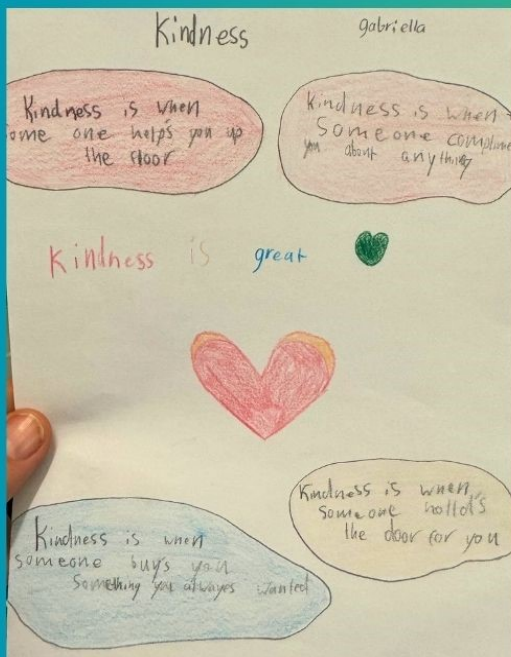 Kindness
gabriella
Kindness is when
some one help's you up
the floor
kindness is when
Someone complime
you about anything
kindness is great
Kindness is when
someone holld's
the door for you
Kindness is when
someone buy's you
Something you always wanted